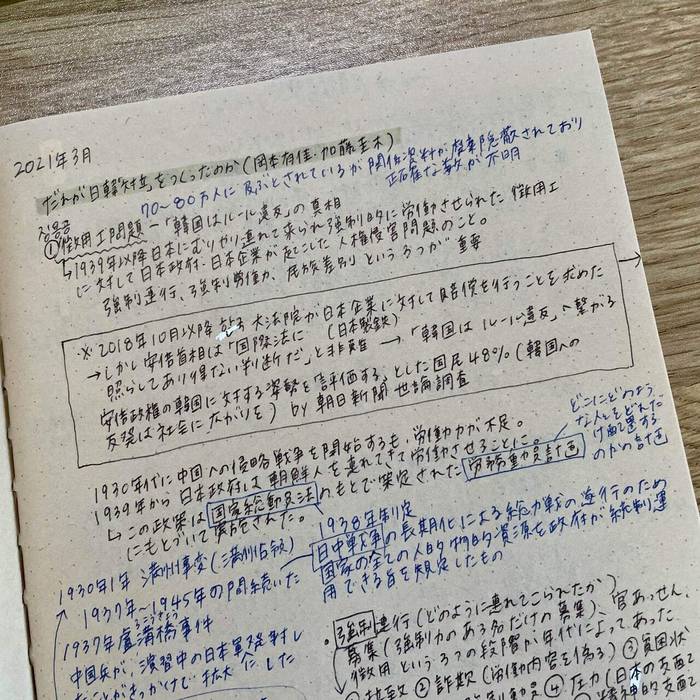 2021年3月
だれが日韓「対立」をつくったのか(岡本有佳・加藤圭木)
70〜80万人に及ぶとされているが関係資料が隠敝されており
正確な数が不明
징용공
①徴用工問題 ー「韓国はルール違反」の真相
↳1939年以降日本にむりやり連れて来られ強制的に労働させられた徴用工
に対して日本政府、日本企業が起こした人権侵害問題のこと。
強制連行、強制労働、民族差別という3つが重要
※2018年10月以降 한국 大法院が日本企業に対して賠償を行うことを求めた
(日本製鉄)
→しかし安倍首相は「国際法に
照らしてあり得ない判断だ」と非難 → 「韓国はルール違反」へ繋がる
安倍政権の韓国に対する姿勢を「評価する」とした国民48%(韓国への
反発は社会に広がりを) by 朝日新聞 世論調査
どこにどのよう
な人をどれだ
け配置する
のかの計画
1930年代に中国への侵略戦争を開始するも、労働力が不足。
1939年から日本政府は朝鮮人を連れてきて労働させることに。
↳この政策は国家総動員法のもとで策定された労務動員計画
にもとづいて実施された。
1938年制定
日中戦争の長期化による総力戦の遂行のため
国家の全ての人的物的資源を政府が統制運
用できる旨を規定したもの
1930年1年 満州事変(満州占領)
1937年〜1945年の間続いた
ろこうきょう
1937年盧溝橋事件
中国兵が、演習中の日本軍
・強制連行(どのように連れてこられたか)
募集(強制力のある名だけの募集)、官あっせん、
徴用という3つの段階が年代によってあった
②詐欺(労働内容を偽る) ③貧困状
④圧力(日本の支配で